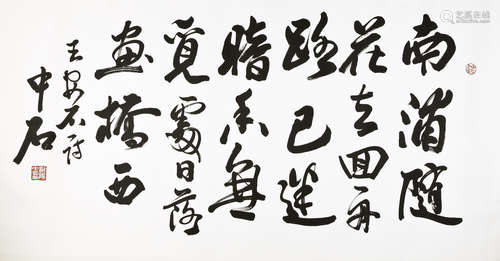 南浦随
花去回舟
路已迷
暗香無
覓處日落
畫橋西
王安石诗
中石